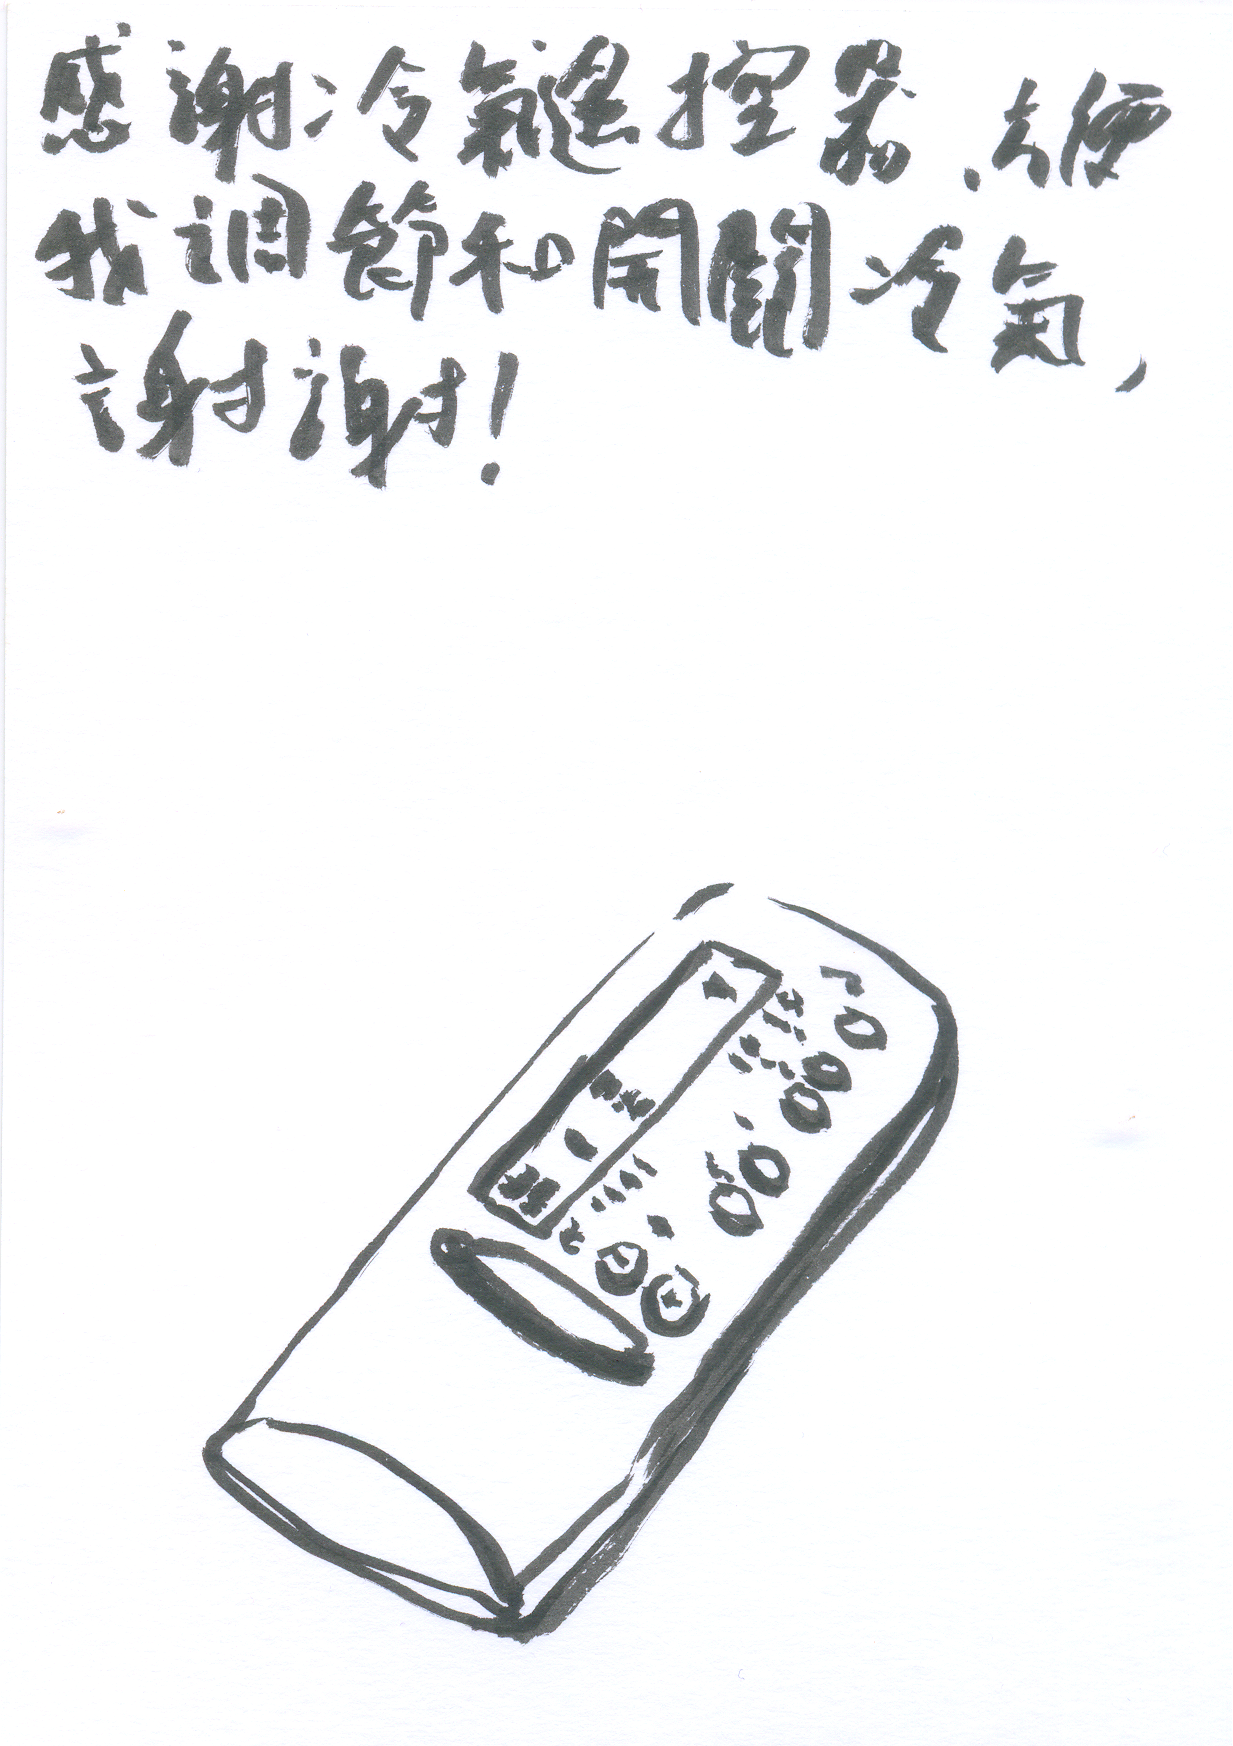 感謝冷氣遙控器，方便
我調節和開關冷氣，
謝謝！